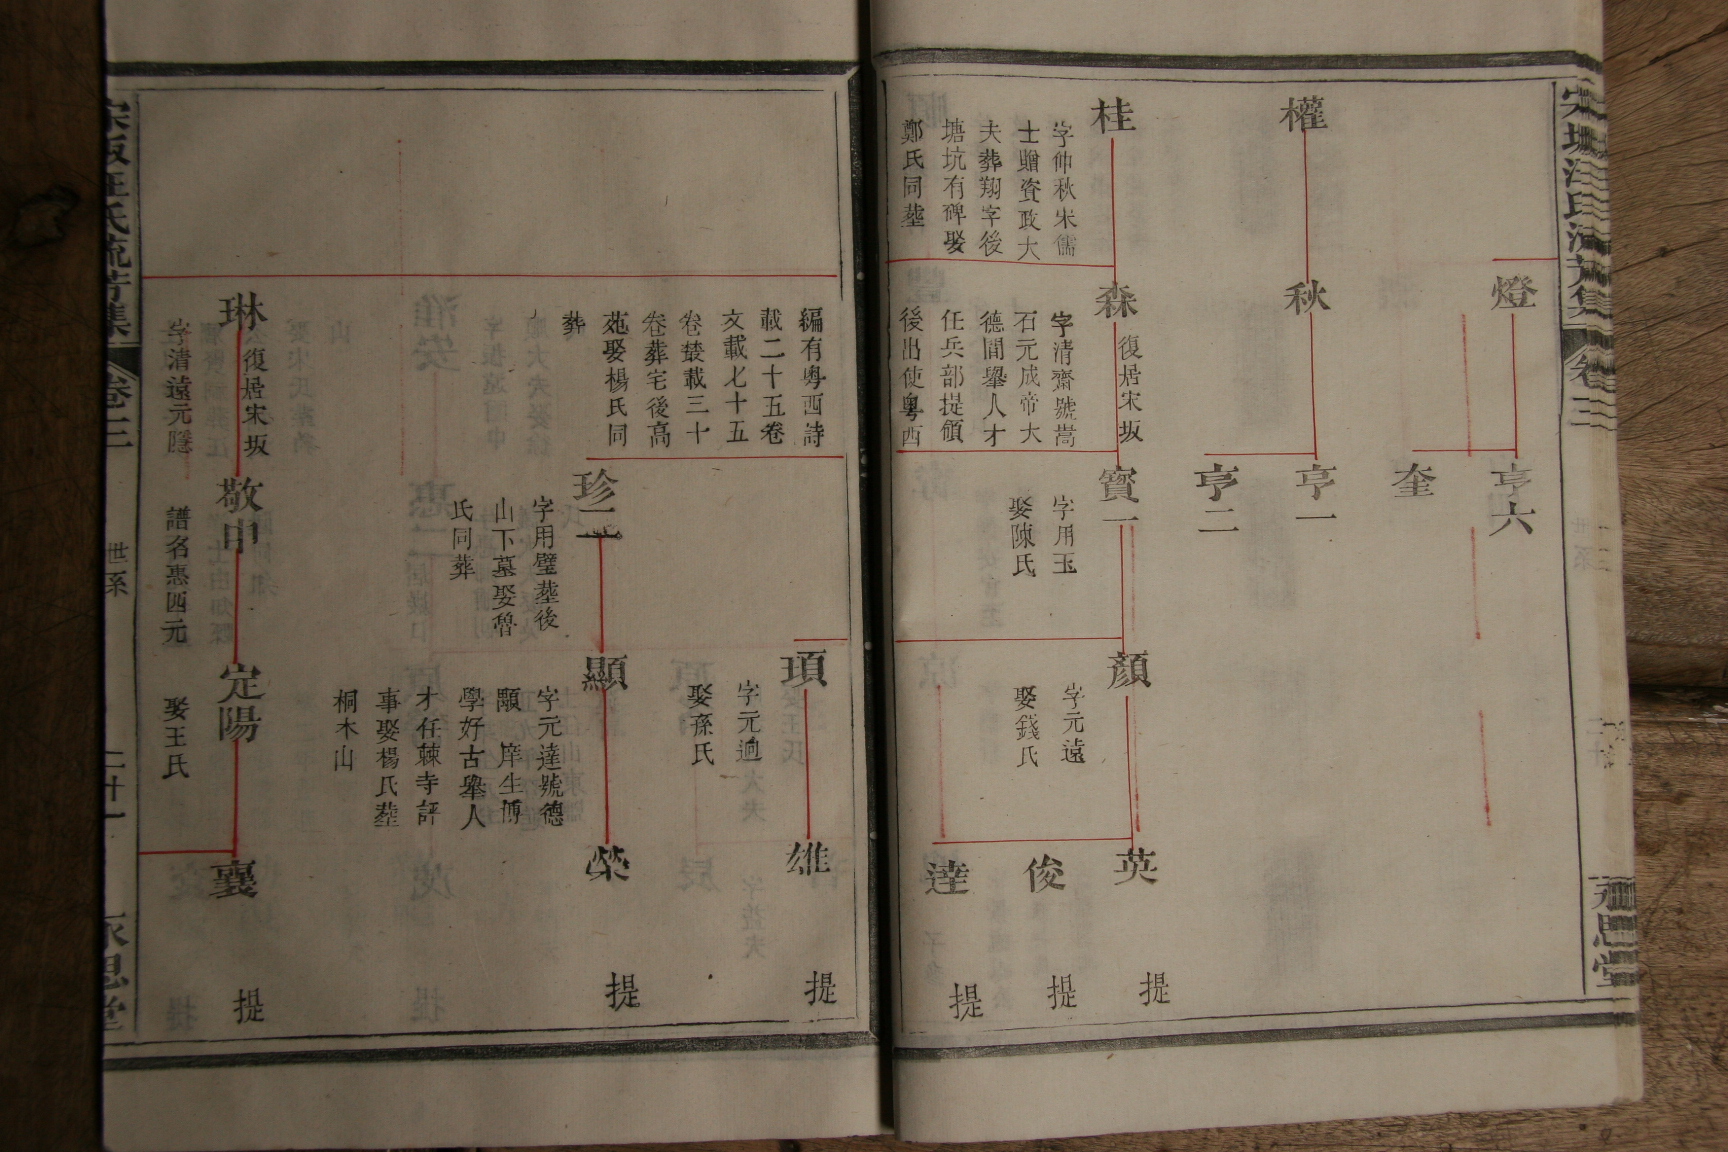 權
秋
燈
亨六
奎
亨一
亨二
桂
字仲秋宋儒
士贈資政大
夫葬翔字後
塘坑有碑娶
鄭氏同塟
森
復居宋坂
字清齋號嵩
石元成帝大
德間舉人才
任兵部提領
後出使粵西
寶一
字用玉
娶陳氏
顏
字元遠
娶錢氏
英
俊
達
提
提
提
編有粵西詩
載二十五卷
文載七十五
卷叢載三十
卷葬宅後高
苑娶楊氏同
葬
珍二
字用璧葬後
山下墓娶魯
氏同葬
頊
字元迥
娶孫氏
雄
提
顯
字元達號德
顒 庠生博
學好古舉人
才任棘寺評
事娶楊氏塟
桐木山
榮
提
琳
復居宋坂
字清遠元隱
敬中
譜名惠四元
定陽
娶王氏
襄
提
宋坂汪氏流芳集
卷三
世系
二十一
永思堂